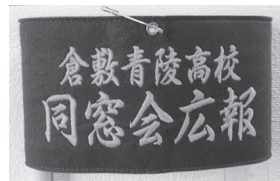 倉敷青陵高校
同窓会広報